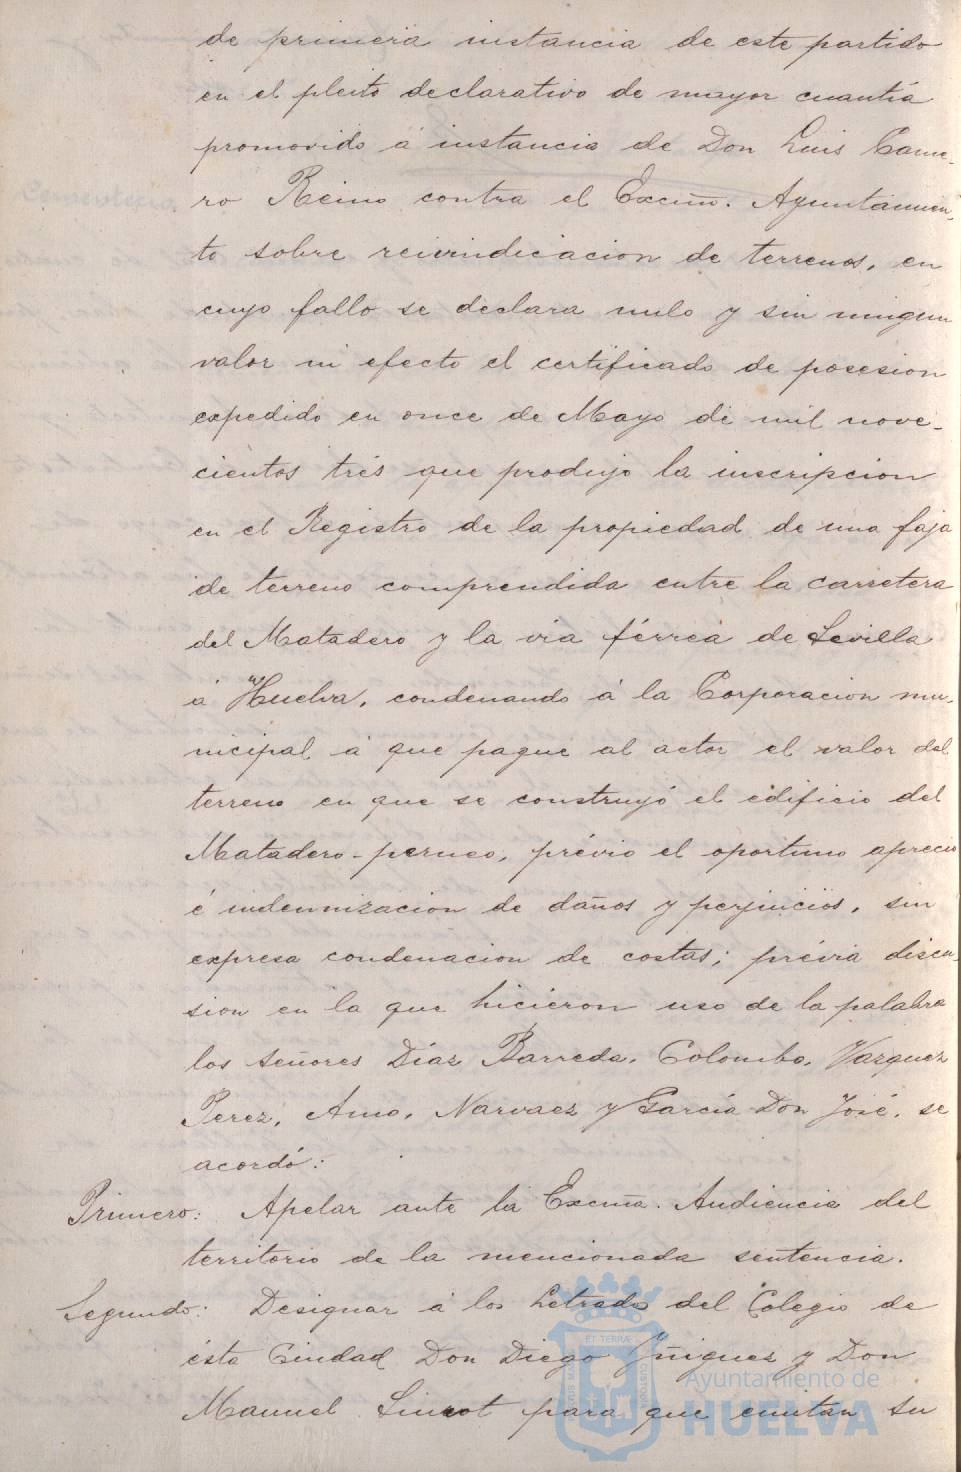 de primera instancia de este partido
en el pleito declarativo de mayor cuantia
promovido á instancia de Don Luis Came-
ro Reino contra el Excmo. Ayuntamien-
to sobre reivindicacion de terrenos, en
cuyo fallo se declara nulo y sin ningun
valor ni efecto el certificado de posesion
expedido en once de Mayo de mil nove-
cientos tres que produjo la inscripcion
en el Registro de la propiedad de una faja
de terreno comprendida entre la carretera
del Matadero y la via férrea de Sevilla
á Huelva, condenando á la Corporacion mu-
nicipal á que pague al actor el valor del
terreno en que se construyó el edificio del
Matadero-perneo, prévio el oportuno aprecio
é indemnizacion de daños y perjuicios, sin
expresa condenacion de costas; prévia discu-
sion en la que hicieron uso de la palabra
los señores Diaz Barreda, Colombo, Vazquez
Perez, Amo, Narvaez y García Don José, se
acordó:
Primero: Apelar ante la Excma. Audiencia del
territorio de la mencionada sentencia.
Segundo: Designar á los Letrados del Colegio de
ésta Ciudad Don Diego Iñiguez y Don
Manuel para que emitan su
ET TERRÆ
PORTUS MARIS
CUSTODIA
Ayuntamiento de
HUELVA